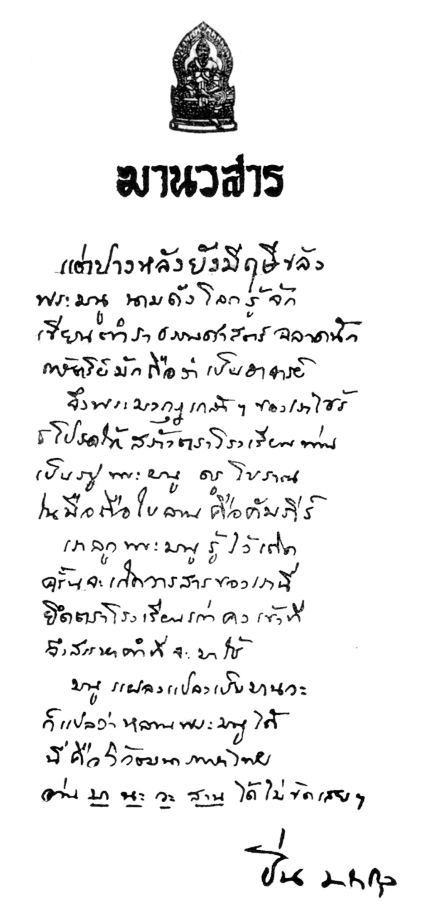 มานวสาร
แต่ปางหลังยังมีฤษีขลัง
พระมนู นามดังโลกรู้จัก
เขียนตำราธรรมศาสตร์ฉลาดนัก
กษัตริย์มักถือว่าเป็นอาจารย์
จึงพระมงกุฎเกล้าฯ ของเราไซร้
ธโปรดให้สร้างตราโรงเรียนท่าน
เป็นรูปพระมนู ดูโบราณ
ในมือถือใบลานคือคัมภีร์
เราลูกพระมนูรู้ไว้เถิด
ครั้นจะเกิดวารสารของเรานี้
ยึดตราโรงเรียนเก่าคงเข้าที
จึงสรรหาคำที่จะมาใช้
มนู แผลงแปลงเป็นมานวะ
ก็แปลว่าหลานพระมนูได้
นี่คือวิวัฒนาภาษาไทย
อ่าน มา นะ วะ สาน ได้ไม่ขัดเลยฯ